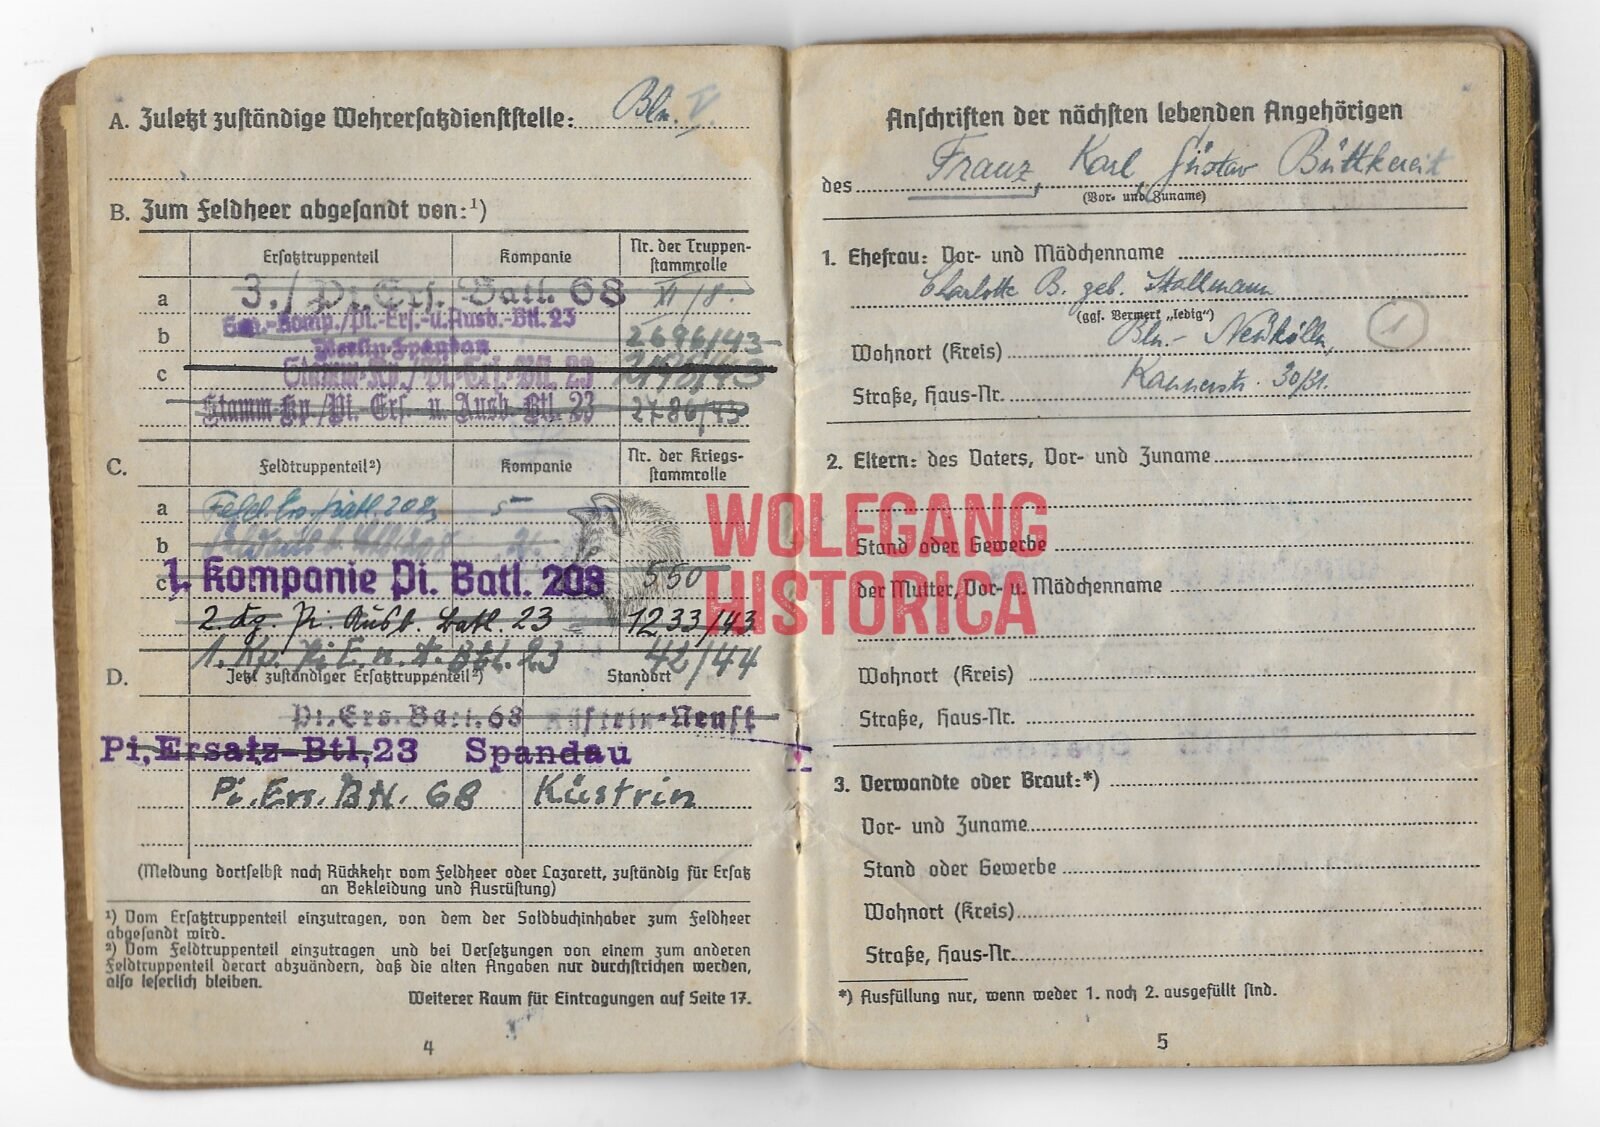 A. Zuletzt zuständige Wehrersatzdienststelle: Bln. V.
B. Zum Feldheer abgesandt von:¹)
Ersatztruppenteil Kompanie Nr. der Truppenstammrolle
a 3./Pi. Ers. Batl. 68 XI/8.
Gen.-Komp./Pi.-Ers.-u.Ausb.-Btl. 23
b 2696/43
Berlin-Spandau
c Stamm-Kp./Pi.-Ers.-Btl. 23
Stamm-Kp./Pi. Ers. u. Ausb. Btl. 23 2786/43
C. Feldtruppenteil²) Kompanie Nr. der Kriegsstammrolle
a Feld. Ers. Batl. 208 5
b
c 1. Kompanie Pi. Batl. 208 550
2. Pi. Ausb. Batl. 23 1233/43
1. Kp. Pi. E. u. A. Btl. 23 42/44
D. Jetzt zuständiger Ersatztruppenteil²) Standort
Pi. Ers. Batl. 68 Küstrin-Neust
Pi,Ersatz-Btl,23 Spandau
Pi. Ers. Btl. 68 Küstrin
(Meldung dortselbst nach Rückkehr vom Feldheer oder Lazarett, zuständig für Ersatz
an Bekleidung und Ausrüstung)
¹) Vom Ersatztruppenteil einzutragen, von dem der Soldbuchinhaber zum Feldheer
abgesandt wird.
²) Vom Feldtruppenteil einzutragen und bei Versetzungen von einem zum anderen
Feldtruppenteil derart abzuändern, daß die alten Angaben nur durchstrichen werden,
also leserlich bleiben.
Weiterer Raum für Eintragungen auf Seite 17.
4
Anschriften der nächsten lebenden Angehörigen
des Franz, Karl, Gustav Büttkereit
(Vor- und Zuname)
1. Ehefrau: Vor- und Mädchenname
Charlotte B. geb. Stallmann
(ggf. Vermerk „ledig")
Wohnort (Kreis) Bln.- Neukölln, 1
Straße, Haus-Nr. 30/31.
2. Eltern: des Vaters, Vor- und Zuname
Stand oder Gewerbe
der Mutter, Vor- u. Mädchenname
Wohnort (Kreis)
Straße, Haus-Nr.
3. Verwandte oder Braut:*)
Vor- und Zuname
Stand oder Gewerbe
Wohnort (Kreis)
Straße, Haus-Nr.
*) Ausfüllung nur, wenn weder 1. noch 2. ausgefüllt sind.
5
WOLFGANG
HISTORICA